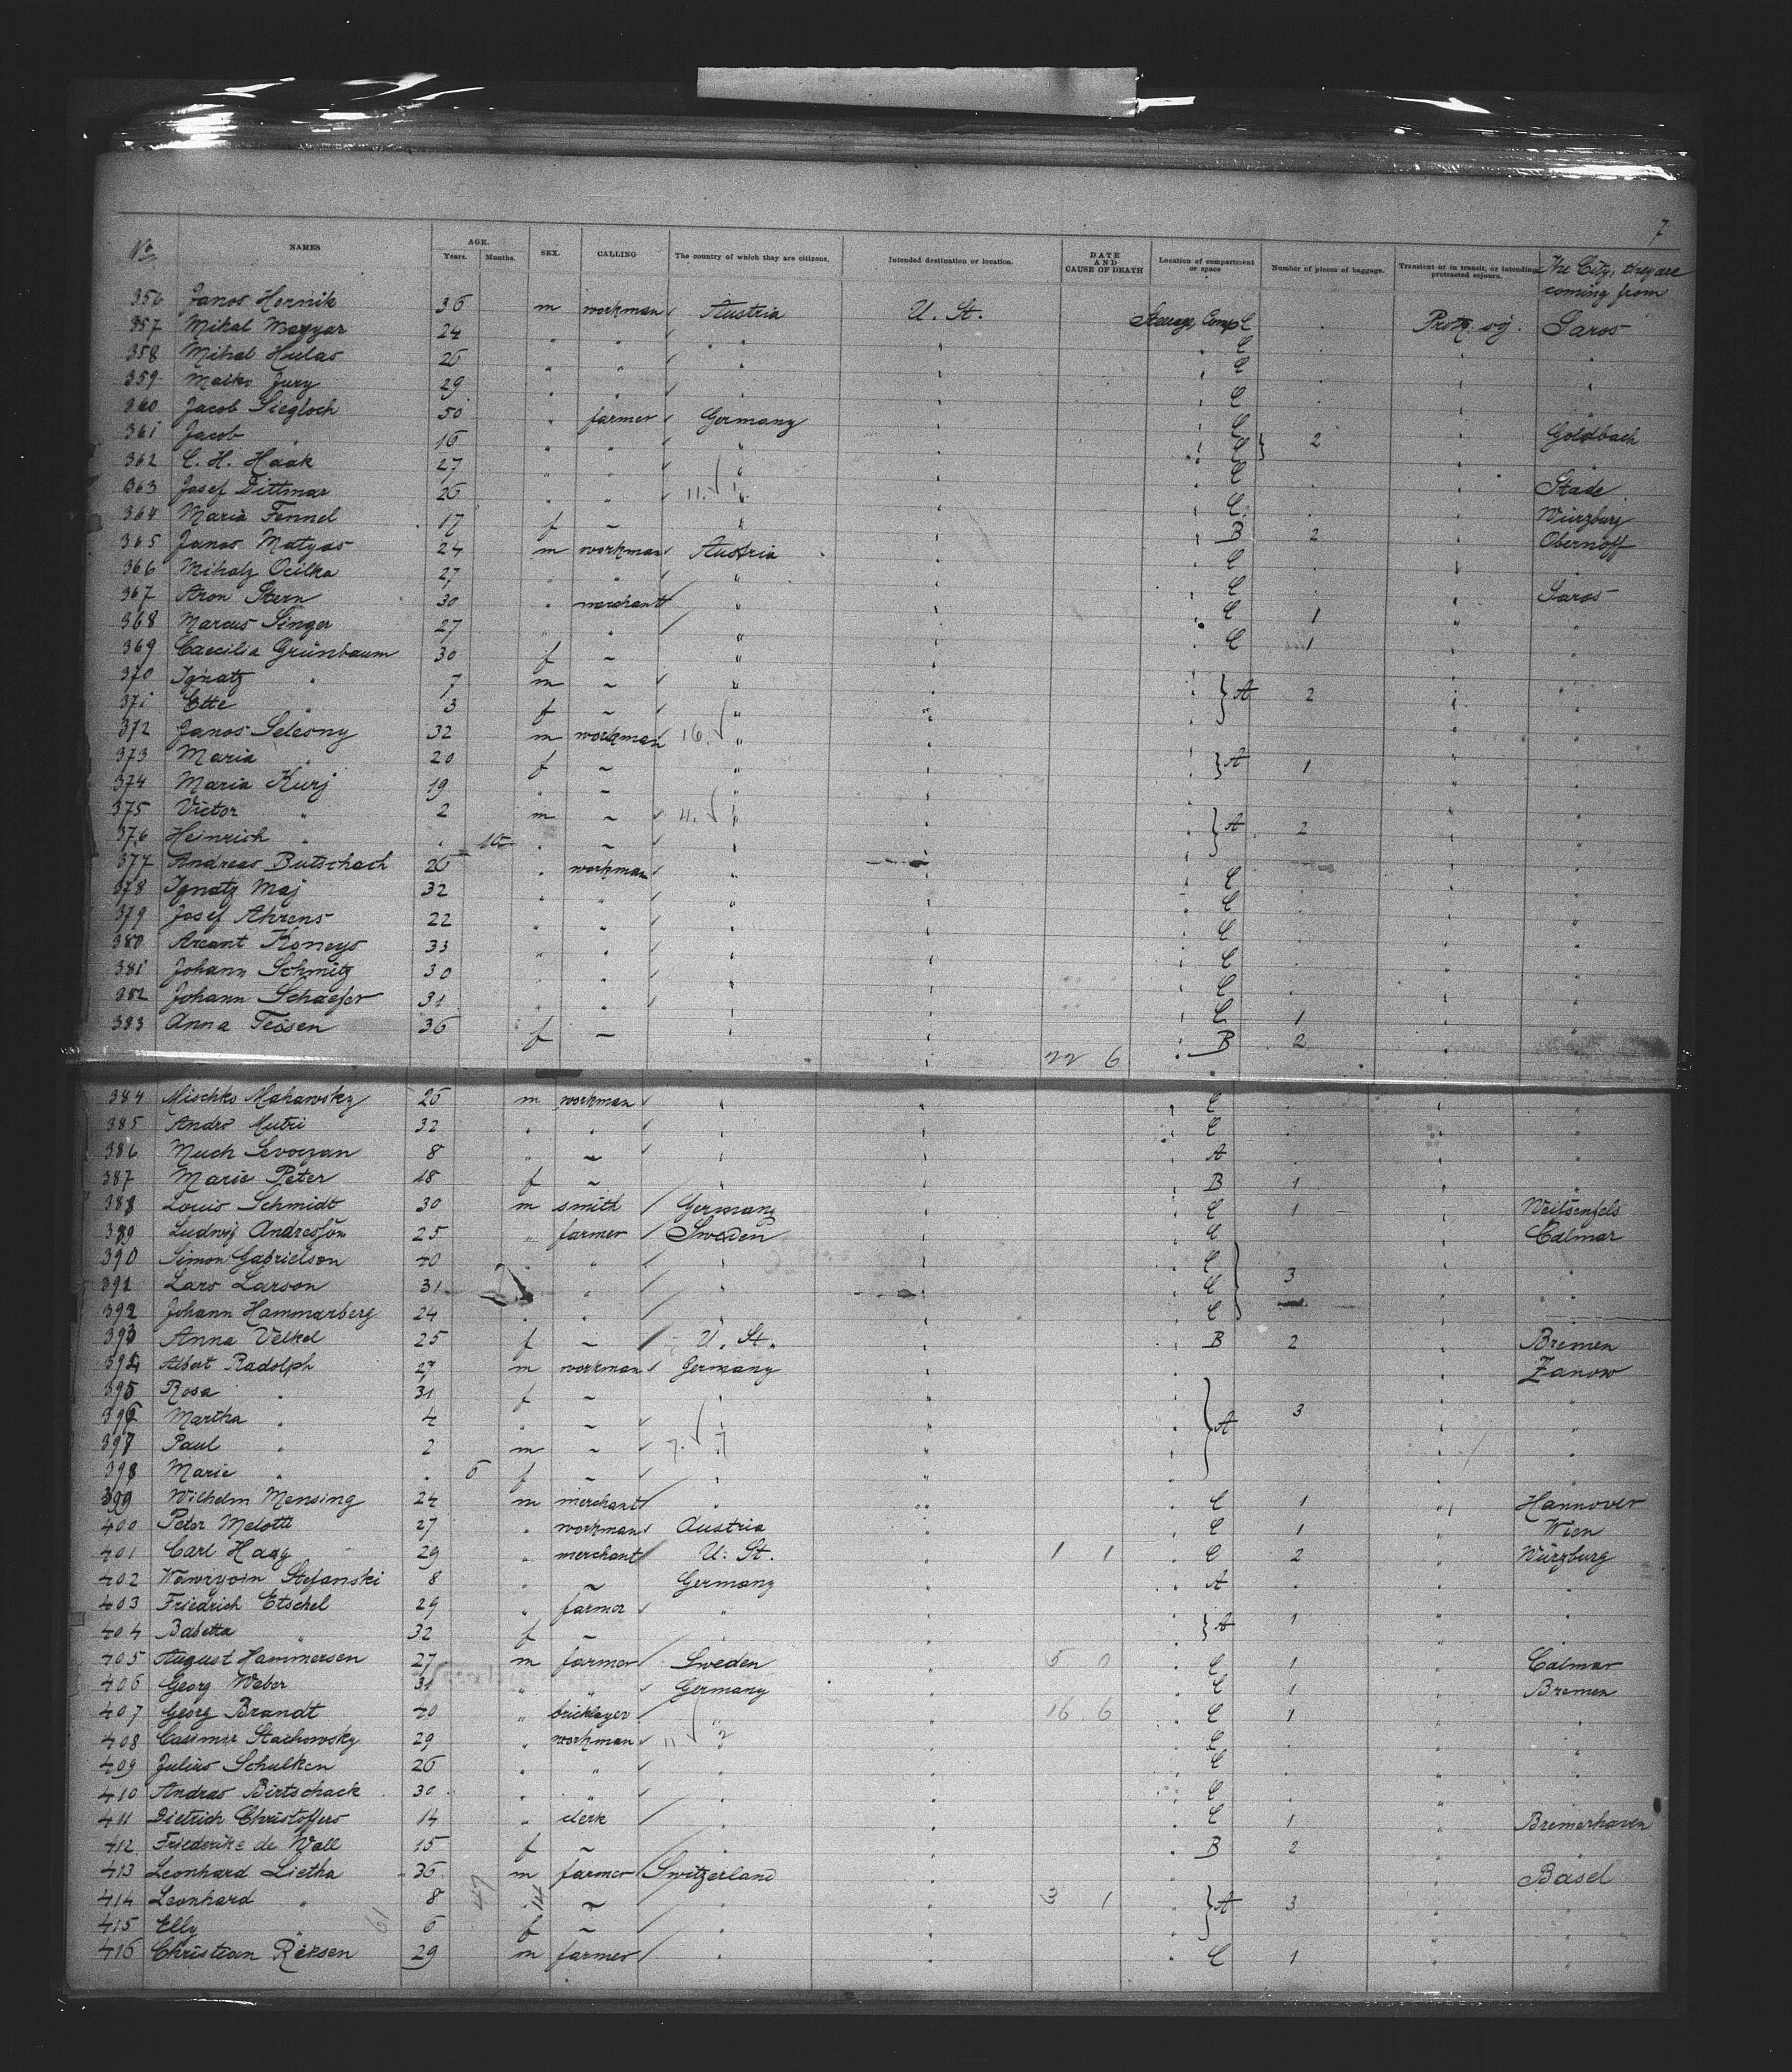 7
No NAMES AGE. Years. Months. SEX. CALLING The country of which they are citizens. Intended destination or location. DATE AND CAUSE OF DEATH Location of compartment or space Number of pieces of baggage. Transient or in transit, or intending protracted sojourn. The City, they are coming from
356 Janos Hornik 36 m workman Austria U. St. Steerage, Comp C Protr. soj. Saros
357 Mihal Magyar 24 " " " " C " "
358 Mihal Hulas 26 " " " C " "
359 Maiko Jury 29 " " " C " "
360 Jacob Siegloch 50 " farmer Germany " C " Goldbach
361 Jacob " 16 " " " " C } 2 " "
362 C. H. Haak 27 " " " " C " Stade
363 Josef Dittmar 26 " " 11. " " C " Würzburg
364 Maria Fennel 17 f ~ " " B 2 " Obernoff
365 Janos Matyas 24 m workman Austria " C "
366 Mihaly Ocilka 27 " " " " C " Saros
367 Aron Stern 30 " merchant " " C 1 " "
368 Marcus Singer 27 " " " " C 1 " "
369 Caecilia Grünbaum 30 f ~ " " " "
370 Ignatz " 7 m ~ " " } A 2 " "
371 Ette " 3 f ~ " " " "
372 Janos Selesny 32 m workman 16. " " " "
373 Maria " 20 f ~ " " } A 1 " "
374 Maria Kurj 19 " ~ " " " "
375 Victor " 2 m ~ 11. " " } A 2 " "
376 Heinrich " " 10 " ~ " " " "
377 Andreas Butschach 26 " workman " " C " "
378 Ignatz Maj 32 " " " " C " "
379 Josef Ahrens 22 " " " " C " "
380 Arcant Koneys 33 " " " " C " "
381 Johann Schmitz 30 " " " " C " "
382 Johann Schaefer 31 " " " " C 1 " "
383 Anna Tessen 36 f ~ " " 22 6 B 2 " "
384 Mischko Mahawsky 26 m workman " " C " "
385 Andro Mutri 32 " " " " C " "
386 Much Levorzan 8 " ~ " " A " "
387 Marie Peter 18 f ~ " " B 1 " "
388 Louis Schmidt 30 m smith Germany " C 1 " Weitsenfels
389 Ludwig Andresson 25 " farmer Sweden " C " Calmar
390 Simon Gabrielson 40 " " " " C " "
391 Lars Larson 31 " " " " C } 3 " "
392 Johann Hammarberg 24 " " " " C " "
393 Anna Velkel 25 f ~ U. St. " B 2 " Bremen
394 Albert Radolph 27 m workman Germany " " Zanow
395 Rosa " 31 f ~ " " " "
396 Martha " 4 " ~ " " } A 3 " "
397 Paul " 2 m ~ 7. " " " "
398 Marie " " 6 f ~ " " " "
399 Wilhelm Mensing 24 m merchant " " C 1 " Hannover
400 Peter Melotti 27 " workman Austria " C 1 " Wien
401 Carl Haag 29 " merchant U. St. " 1 1 C 2 " Würzburg
402 Wawrzoin Stefanski 8 " ~ Germany " A " "
403 Friedrich Etschel 29 " farmer " " } A 1 " "
404 Babetta " 32 f ~ " " " "
405 August Hammersen 27 m farmer Sweden " 5 0 C 1 " Calmar
406 Georg Weber 31 " " Germany " C 1 " Bremen
407 Georg Brandt 40 " bricklayer " " 16 6 C 1 " "
408 Casimir Stachowsky 29 " workman 11 " " C " "
409 Julius Schulken 26 " " " " C " "
410 Andras Birtschack 30 " " " " C " "
411 Dietrich Christoffers 14 " clerk " " C 1 " Bremerhaven
412 Friederike de Wall 15 f ~ " " B 2 " "
413 Leonhard Lietha 36 m farmer Switzerland " " Basel
414 Leonhard " 8 " ~ " " 3 1 } A 3 " "
415 Elly " 6 f ~ " " " "
416 Christian Reksen 29 m farmer " " C 1 " "
61 47 14